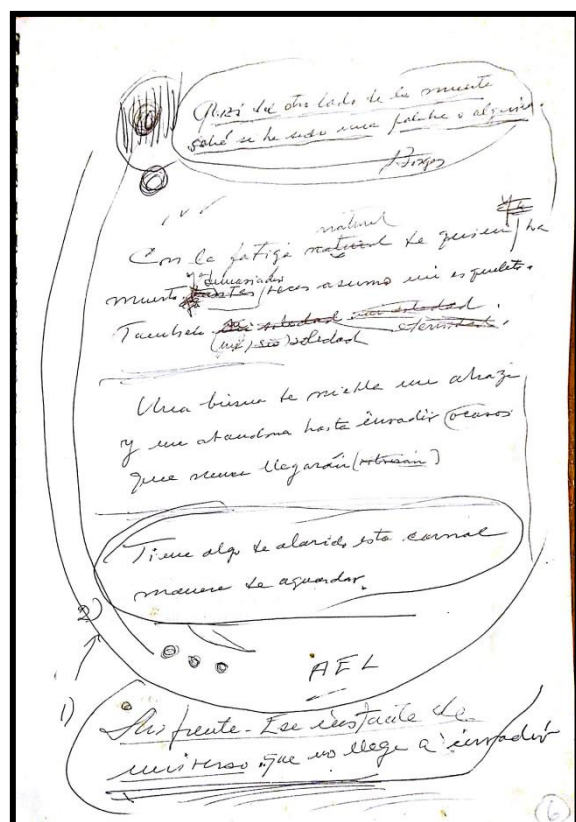 Quizá del otro lado de la muerte
sabré si he sido una palabra o alguien.
Borges
natural
Con la fatiga natural de quien ya ha
ya demasiadas
muerto tantas veces asumo mi esqueleto.
También mi soledad. eternidad.
(mi) soledad
Una bruma de niebla me abraza
y me abandona hasta invadir (ocasos
que nunca llegarán)
Tiene algo de alarido esta carnal
manera de aguardar.
2)
AEL
1)
Su frente. Ese instante de
universo que no llegó a invadir
6